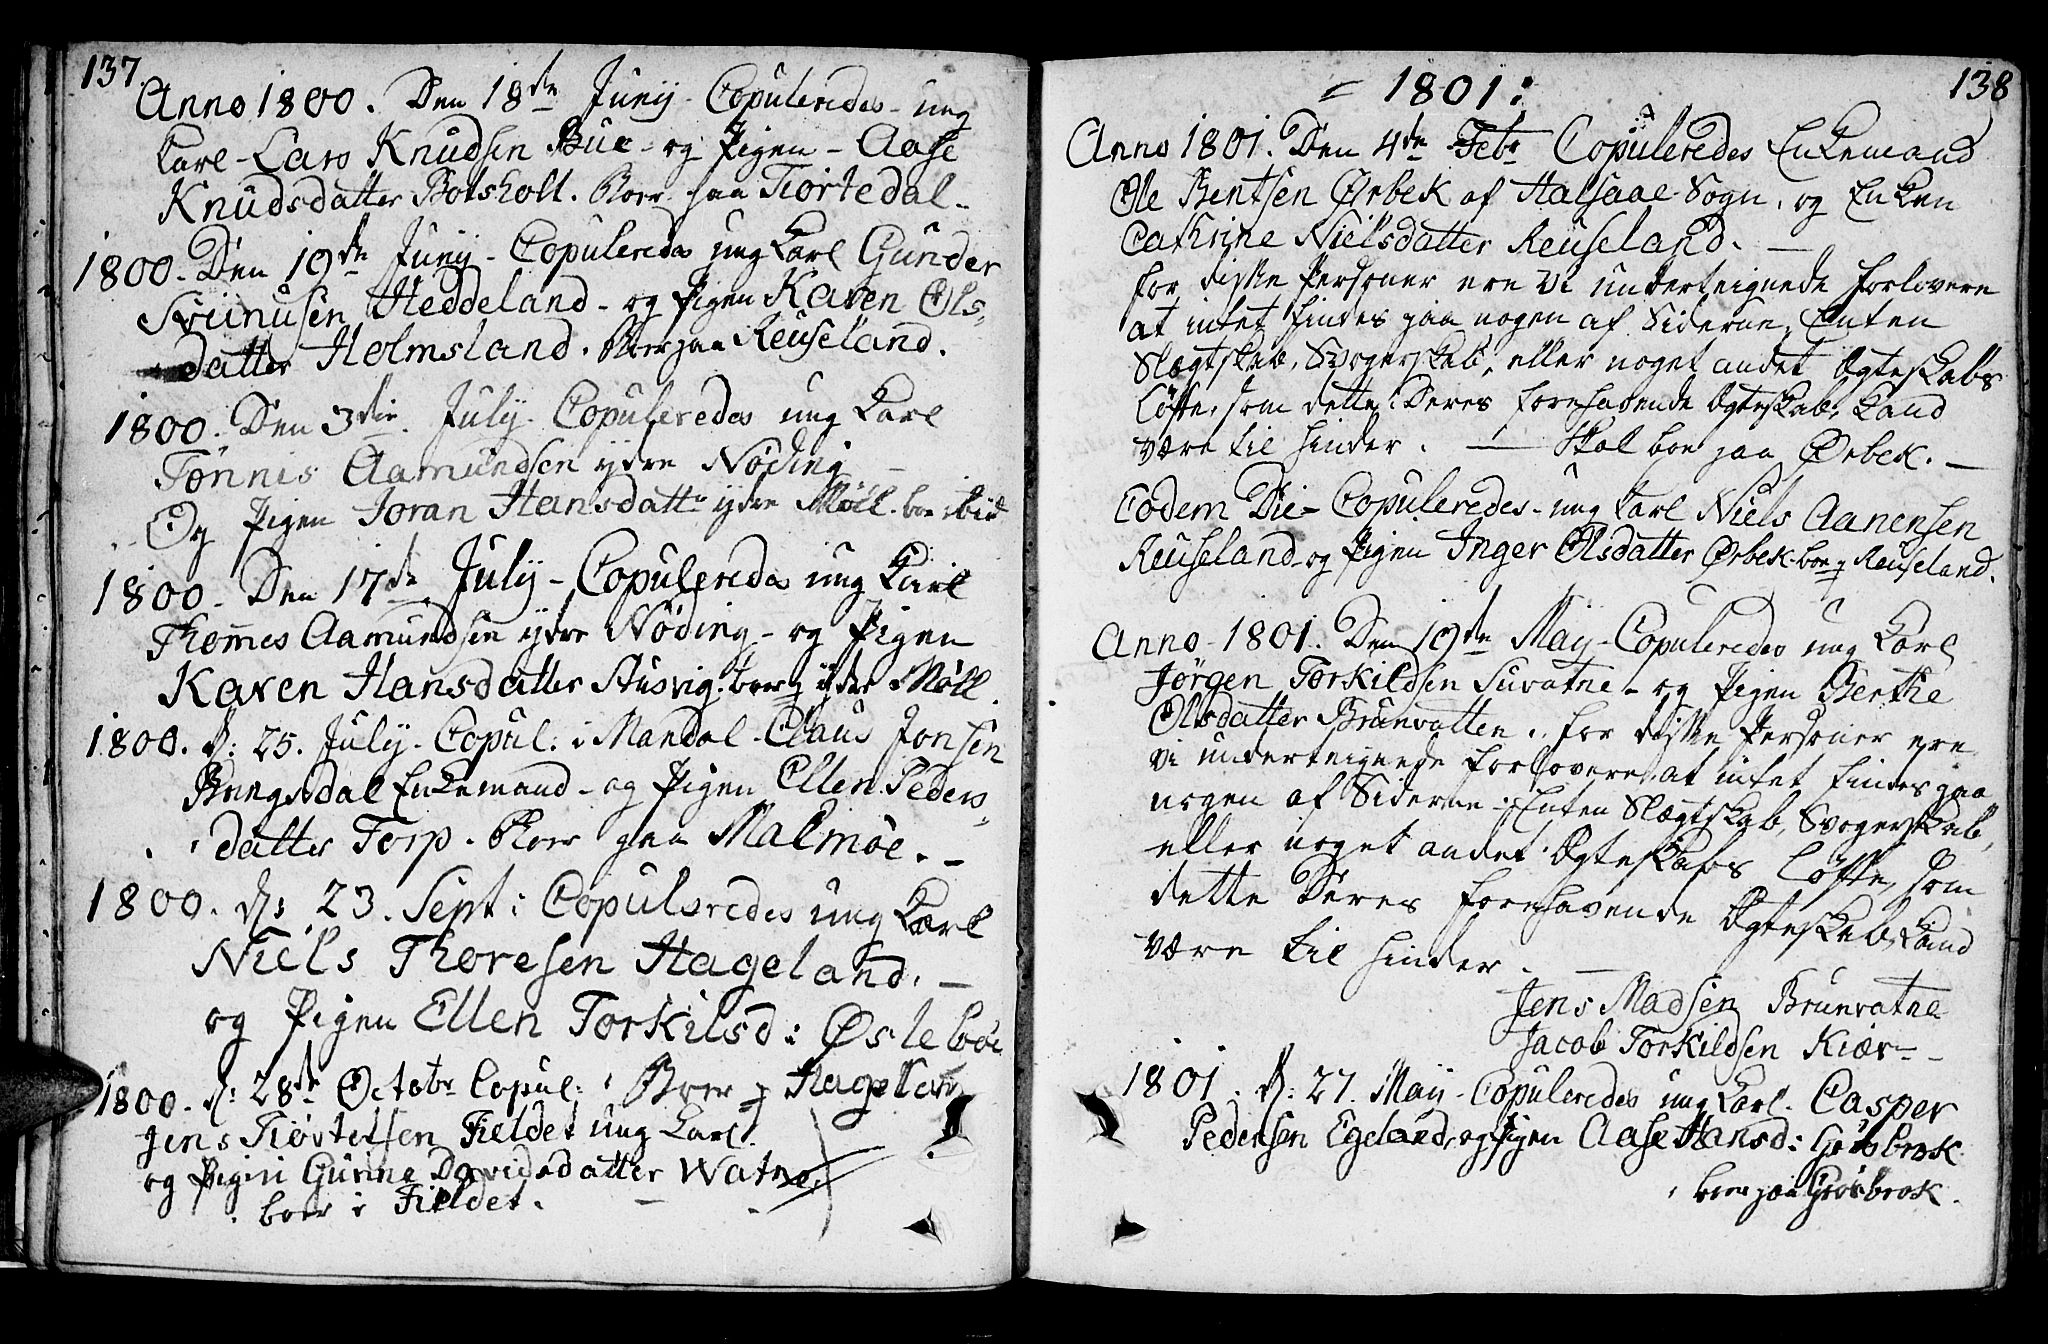 137.
Anno 1800. Den 18de Junÿ - Copuleredes - ung
Karl - Lars Knudsen Bue - og Pigen - Aase
Knudsdatter Botsholt. Boer paa Tiortedal -
1800. Den 19de Junÿ - Copuleredes ung Karl Gunder
Sviinusen Heddeland - og Pigen Karen Ols-
datter Holmsland. Boer paa Reuseland.
1800. Den 3die July. Copuleredes ung Karl
Tønnis Aamundsen ydre Nøding -
Og Pigen Joran Hansdattr ydre Møll. boe ibid
1800. Den 17de July - Copuleredes ung Karl
Thomes Aamundsen ydre Nøding - og Pigen
Karen Hansdatter Stusvig. boer p ydre Møll.
1800. D: 25. July. Copul: i Mandal - Claus Jonsen
Bringsdal Enkemand - og Pigen Ellen Peders-
datter Torp. Boer paa Malmøe. -
1800. d: 23. Sept: Copuleredes ung Karl
Niels Thoresen Hageland. -
og Pigen Ellen Torkilsd: Øslebøe
1800. d: 28de Octobr Copul: Boer p Hageland
Jens Tiøstelsen Fieldet ung Karl.
og Pigen Gurine Davidsdatter Watne
boer i Fieldet.
138
= 1801:
Anno 1801. Den 4de Febr Copuleredes Enkemand
Ole Bentsen Ørbek af Halsaae Sogn, og Enken
Cathrine Nielsdatter Reuseland. -
for diske Personer ere vi underteignede forlovere
at intet findes paa nogen af Siderne, Enten
Slægtskab, Svogerskab, eller noget andet Ægteskabs
Løfte, som dette Deres forehavende Ægteskab, kand
være til hinder. - Skal boe paa Ørbek. -
Eodem Die - Copuleredes - ung Karl Niels Aanensen
Reuseland - og Pigen Inger Olsdatter Ørbek - boe p Reuseland.
Anno - 1801. Den 19de Maÿ - Copuleredes ung Karl
Jørgen Torkildsen Suvatne - og Pigen Berthe
Olsdatter Brunvatten. for diske Personer ere
vi underteignede forlovere, at intet findes paa
nogen af Siderne - Enten Slægtskab, Svogerskab,
eller noget andet Ægteskabs Løfte, som
dette Deres forehavende Ægteskab, kand
være til hinder. -
Jens Madsen Brunvatne
Jacob Torkildsen Kiær -
1801. D: 27. Maÿ - Copuleredes ung Karl. Casper
Pedersen Egeland, og Pigen Aase Hansd: Grøsbrok
boer paa Grøsbrok.